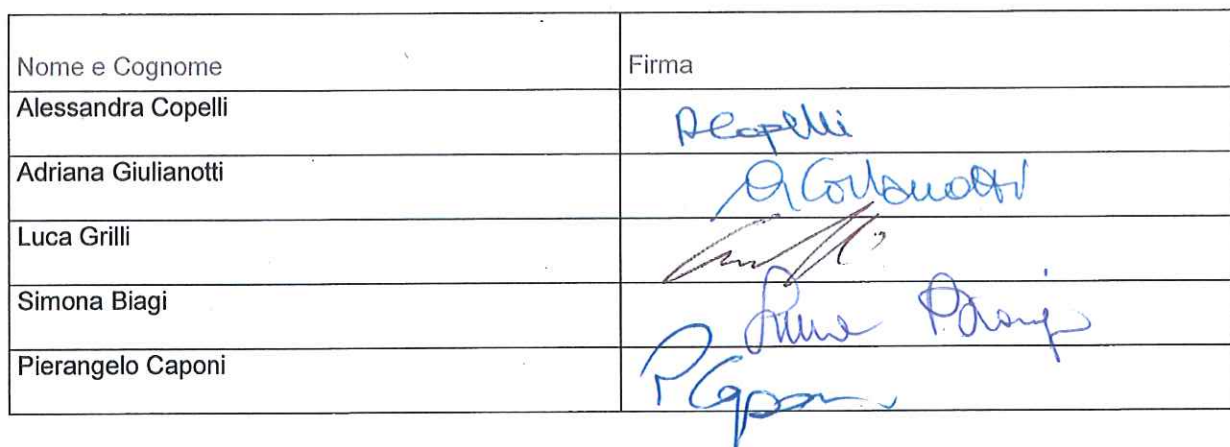 Nome e Cognome Firma
Alessandra Copelli ACopelli
Adriana Giulianotti
Luca Grilli
Simona Biagi
Pierangelo Caponi P Caponi